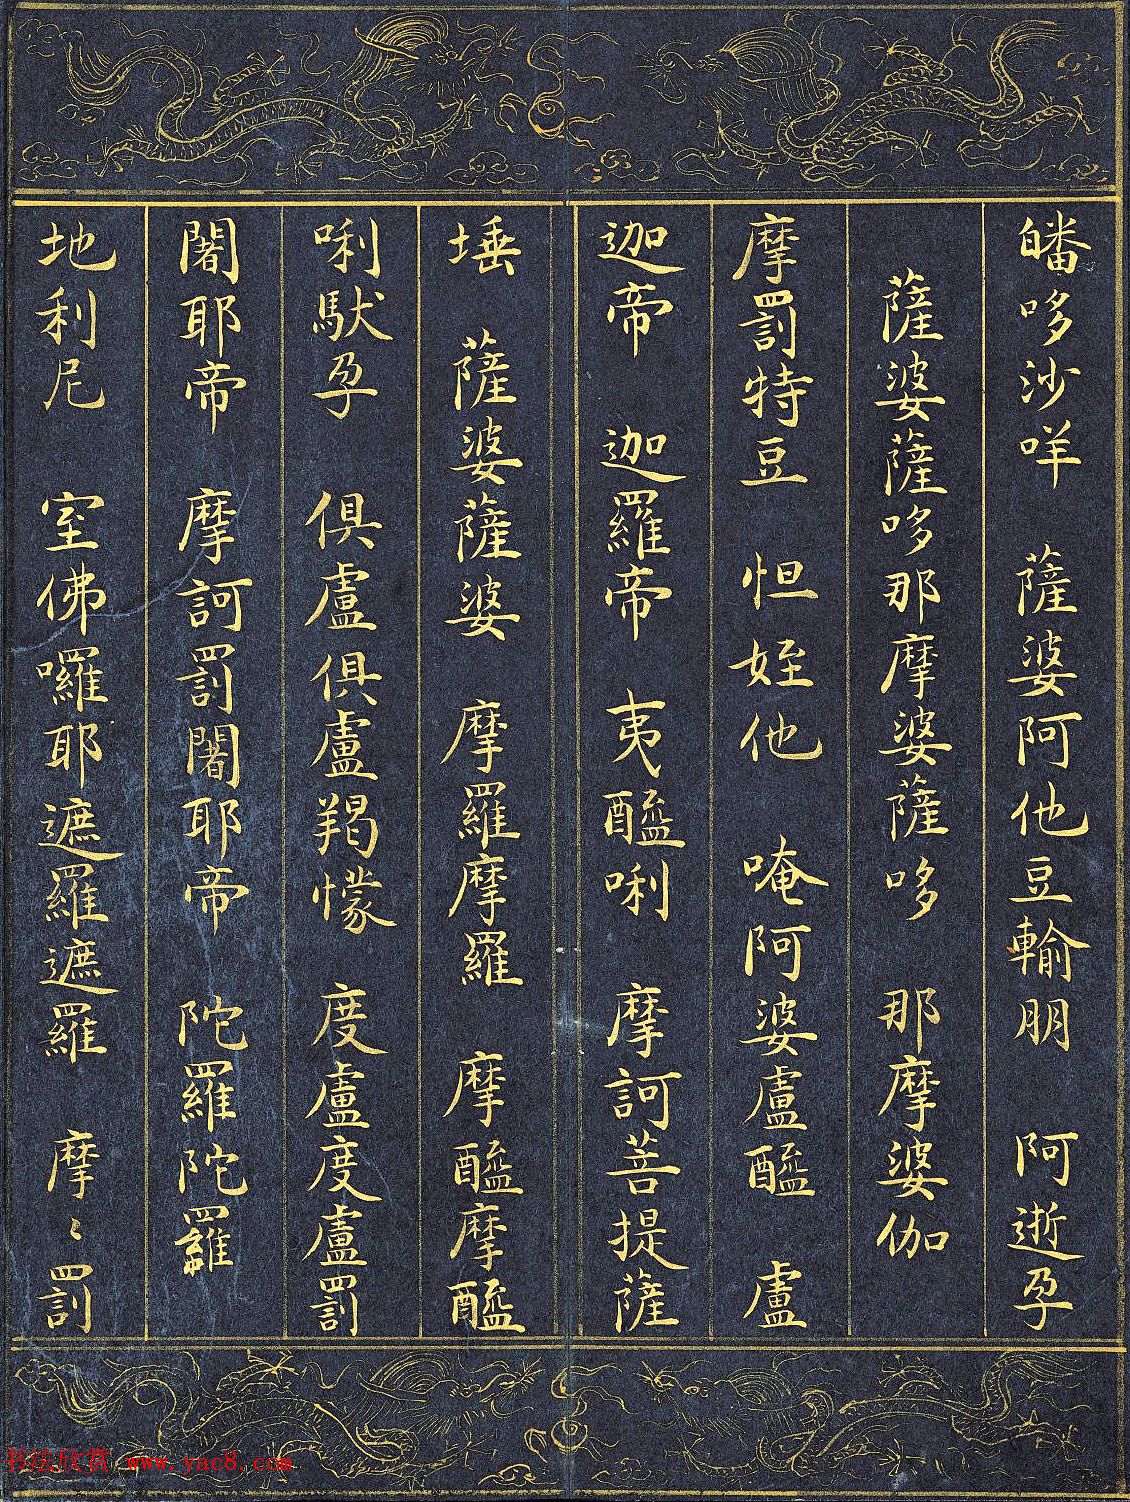 皤哆沙咩 薩婆阿他豆輸朋 阿逝孕
薩婆薩哆那摩婆薩哆 那摩婆伽
摩罰特豆 怛姪他 唵阿婆盧醯 盧
迦帝 迦羅帝 夷醯唎 摩訶菩提薩
埵 薩婆薩婆 摩羅摩羅 摩醯摩醯
唎馱孕 俱盧俱盧羯懞 度盧度盧罰
闍耶帝 摩訶罰闍耶帝 陀羅陀羅
地利尼 室佛囉耶遮羅遮羅 摩〻罰
书法欣赏 www.yac8.com